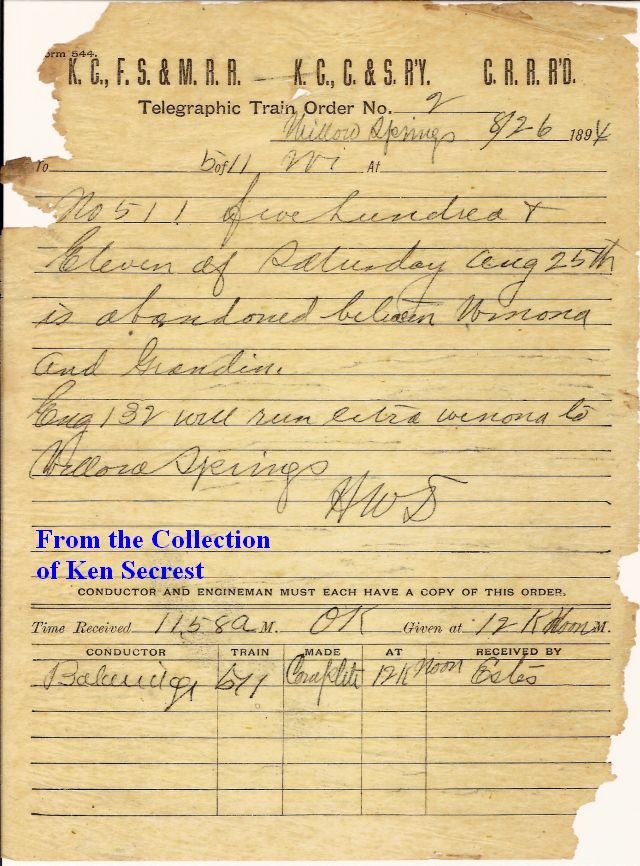 Form 544.
K. C., F. S. & M. R. R. — K. C., C. & S. R'Y. C. R. R. R'D.
Telegraphic Train Order No. 2
Willow Springs 8/26 1894
To 5 of 11 Wi At
No 511 five hundred &
Eleven of Saturday Aug 25th
is abandoned between Winona
and Grandin.
Eng 132 will run extra winona to
Willow Springs
HWS
From the Collection
of Ken Secrest
CONDUCTOR AND ENGINEMAN MUST EACH HAVE A COPY OF THIS ORDER.
Time Received 1158a M. OK Given at 12 K Noon M.
CONDUCTOR TRAIN MADE AT RECEIVED BY
511 Complete 12K Noon Estes